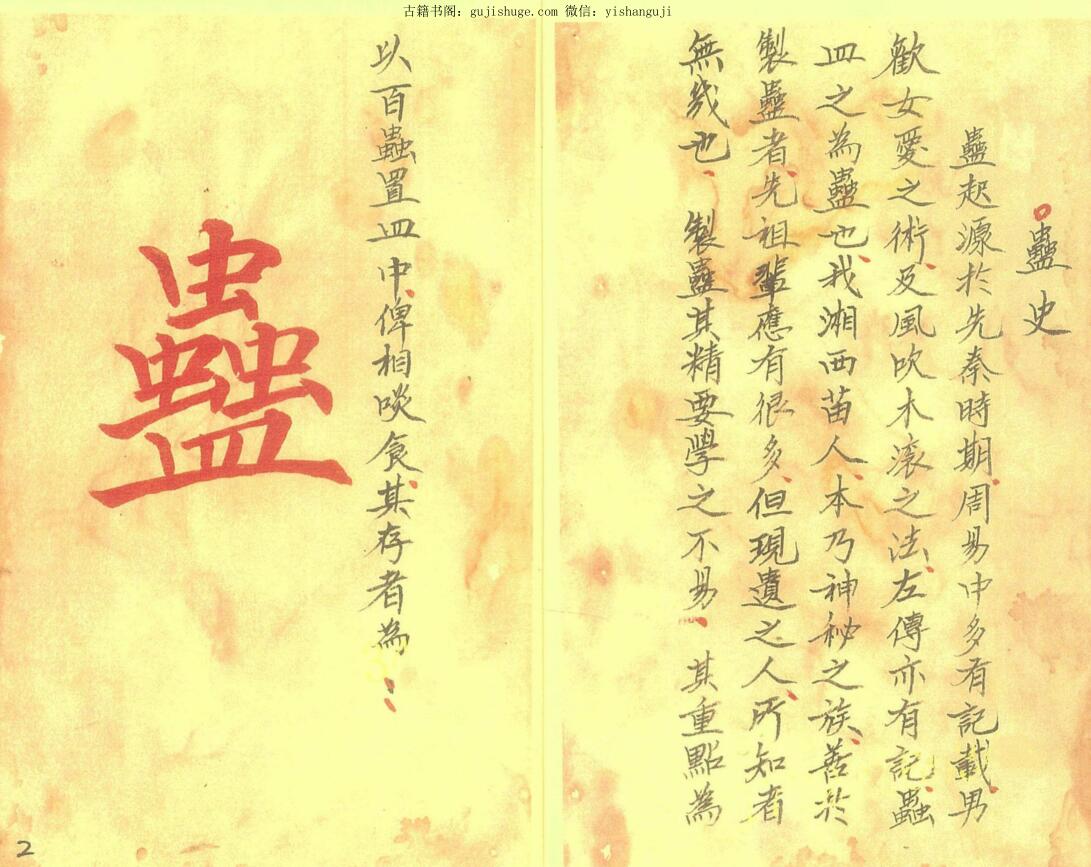 古籍书阁：gujishuge.com 微信：yishanguji
蠱史
蠱起源於先秦時期周易中多有記載男
歡女愛之術及風吹木滾之法左傳亦有記蟲
皿之為蠱也我湘西苗人本乃神秘之族善於
製蠱者先祖輩應有很多但現遺之人所知者
無幾也 製蠱其精要學之不易 其重點為
以百蟲置皿中俾相啖食其存者為：
蠱
2